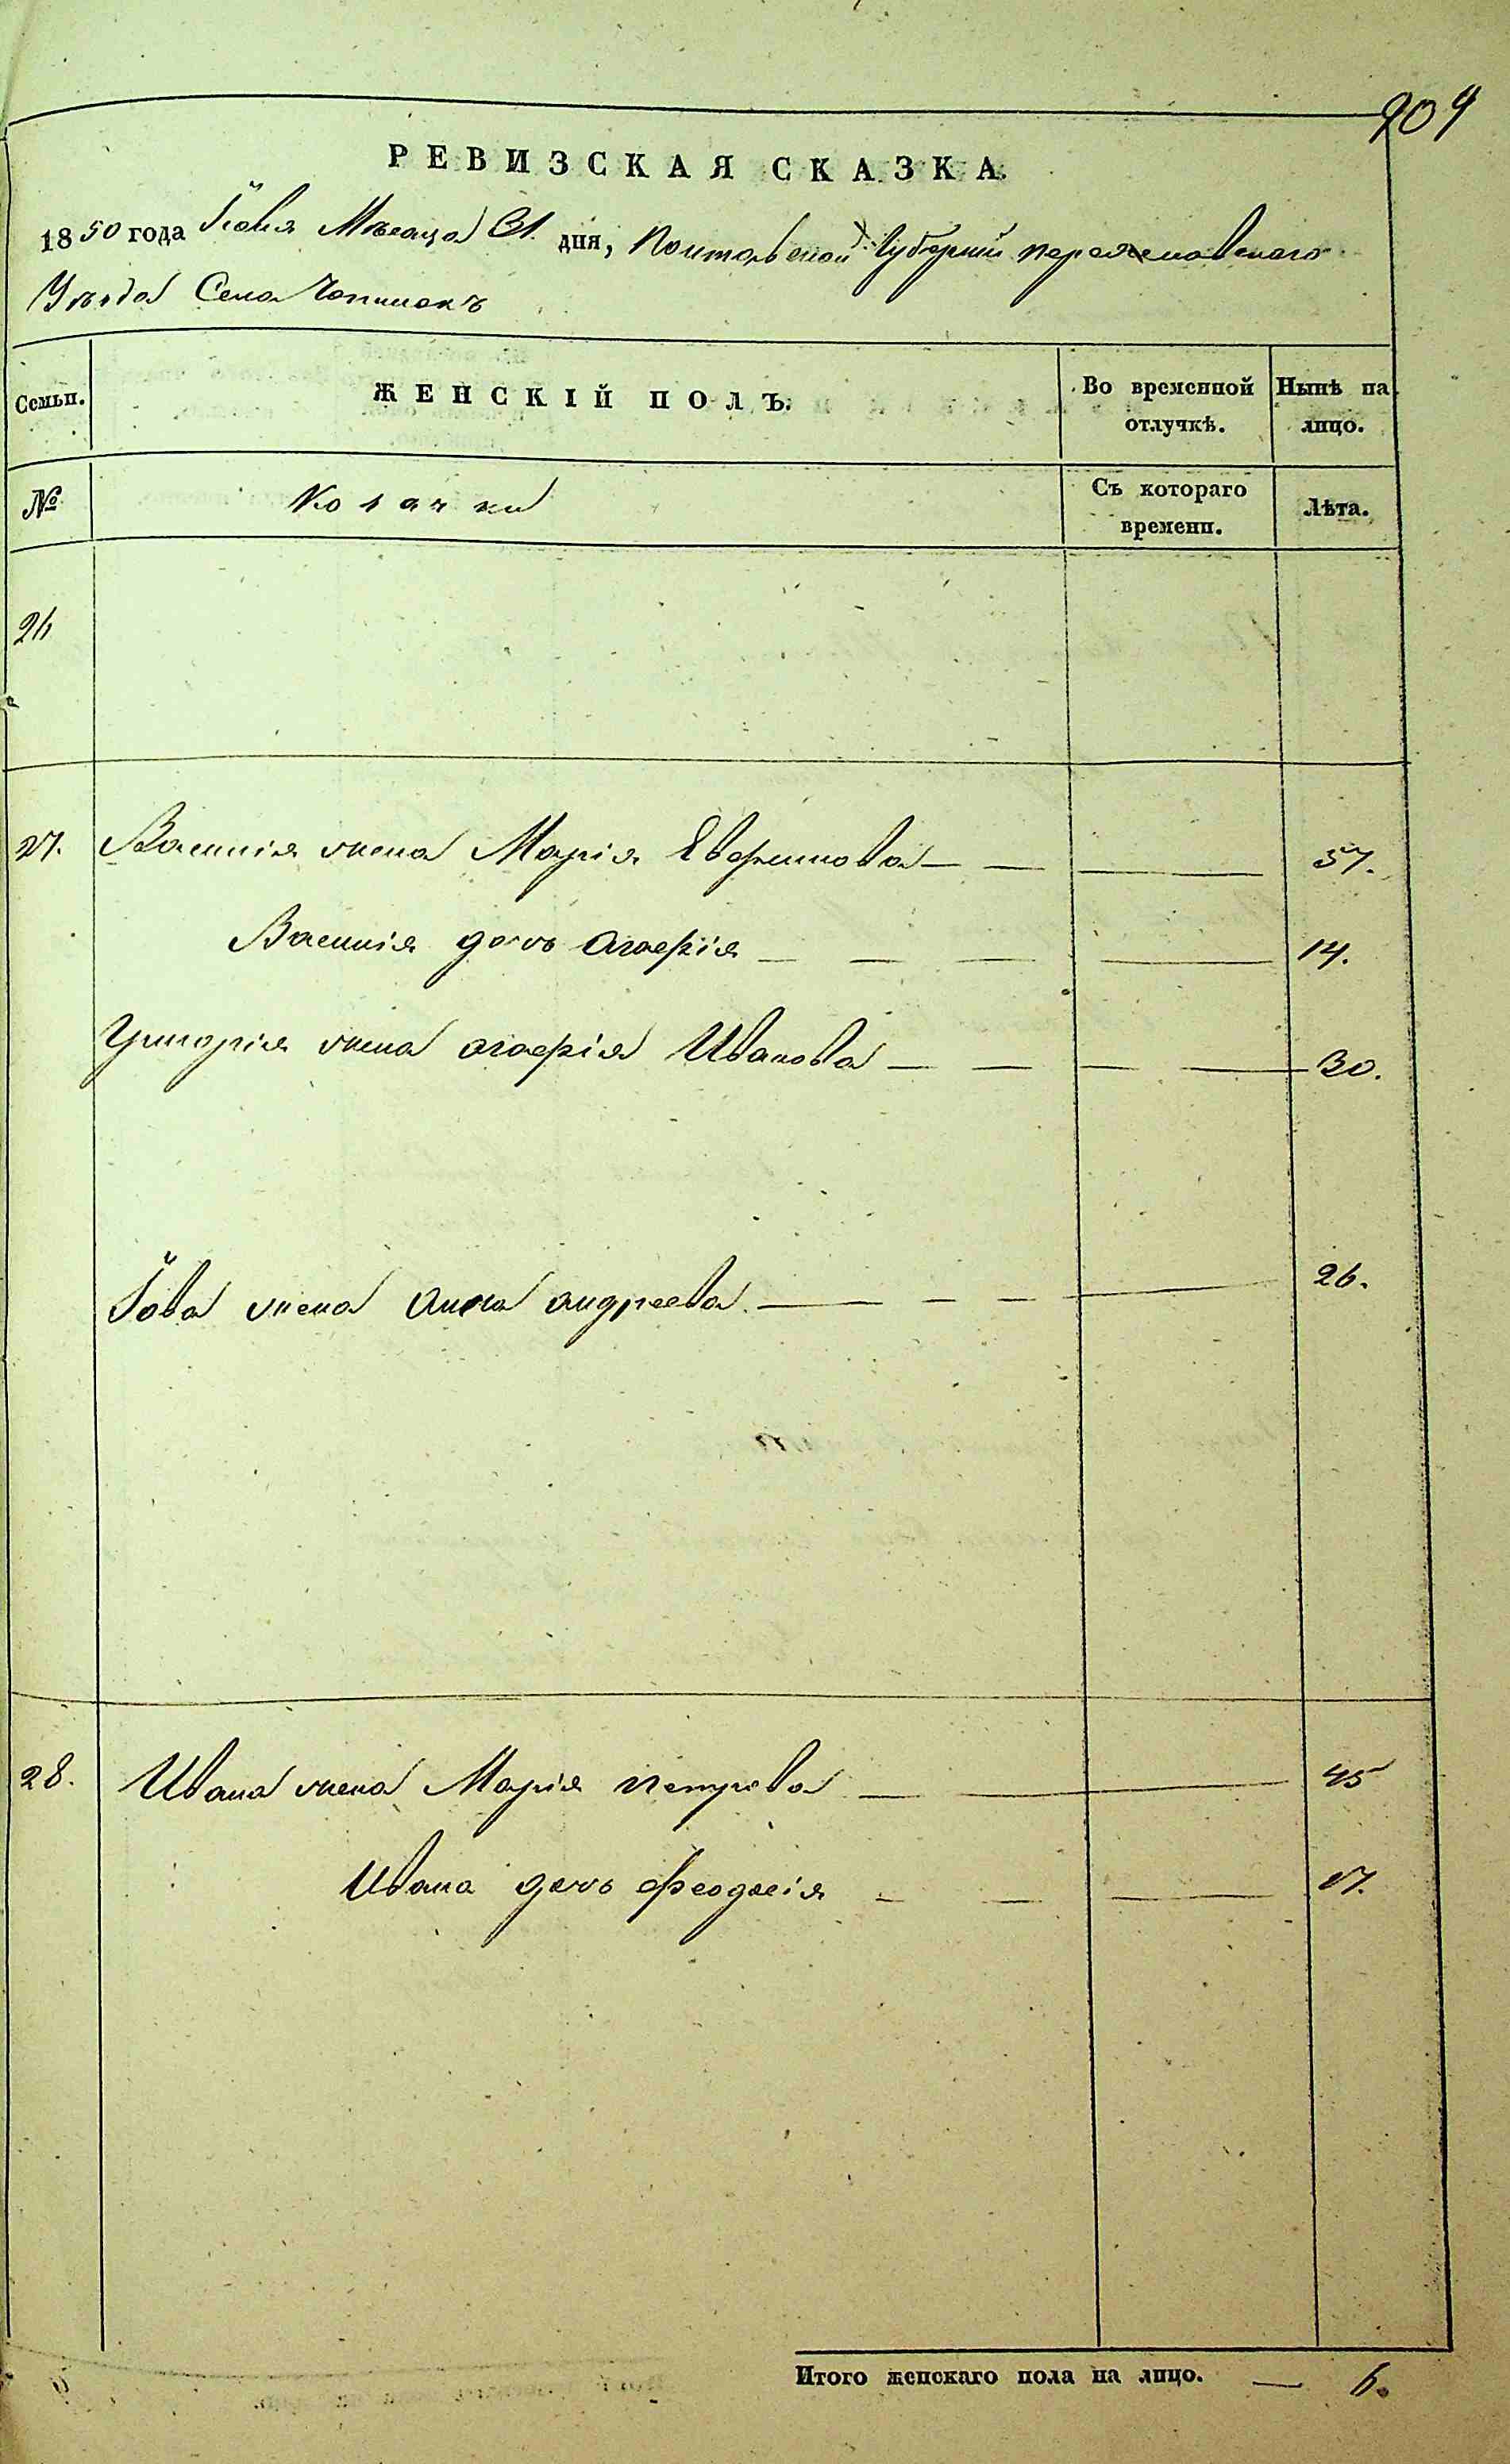 204
РЕВИЗСКАЯ СКАЗКА.
1850 года Іюня Мѣсяца 31 дня, Полтавской Губерніи Переяславскаго
Уѣзда Села Чопилокъ
Семьи. ЖЕНСКІЙ ПОЛЪ. Во временной отлучкѣ. Нынѣ на лицо.
№ Козачки Съ котораго времени. Лѣта.
26
27. Василія жена Марія Евфимова 57.
Василія дочь Агафія 14.
Григорія жена Агафія Иванова 30.
Іова жена Анна Андреева 26.
28. Ивана жена Марія Петрова 45
Ивана дочь Феодосія 17.
Итого женскаго пола на лицо. — 6.